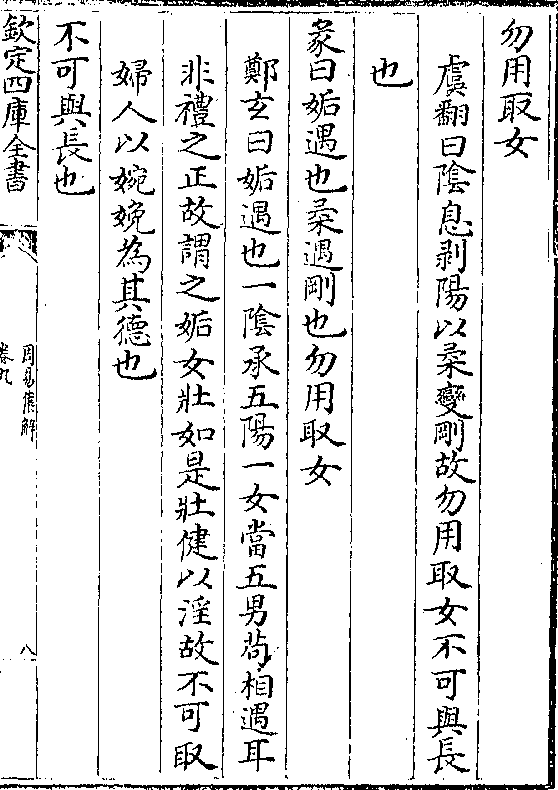 勿用取女
虞翻曰陰息剥陽以柔變剛故勿用取女不可與長
也
彖曰姤遇也柔遇剛也勿用取女
鄭玄曰姤遇也一陰承五陽一女當五男茍相遇耳
非禮之正故謂之姤女壯如是壯健以淫故不可取
婦人以婉娩為其德也
不可與長也
欽定四庫全書
周易集解
卷九
八